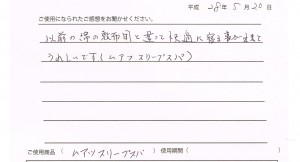 平成 28年 5月 20日
ご使用になられたご感想をお聞かせください。
以前の綿の敷布団と違って快適に寝る事が出来て
うれしいです(ムアツスリープスパ)
ご使用商品( ムアツスリープスパ ) 使用期間(